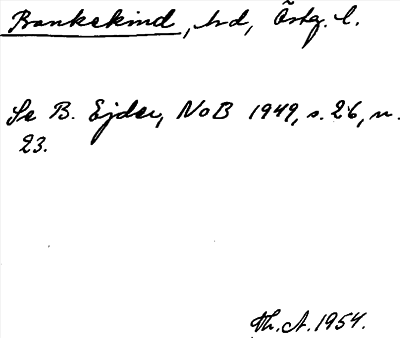 Bankekind, hd, Östg. l.
Se B. Ejder, NoB 1949, s. 26, n.
23.
Th. A. 1954.